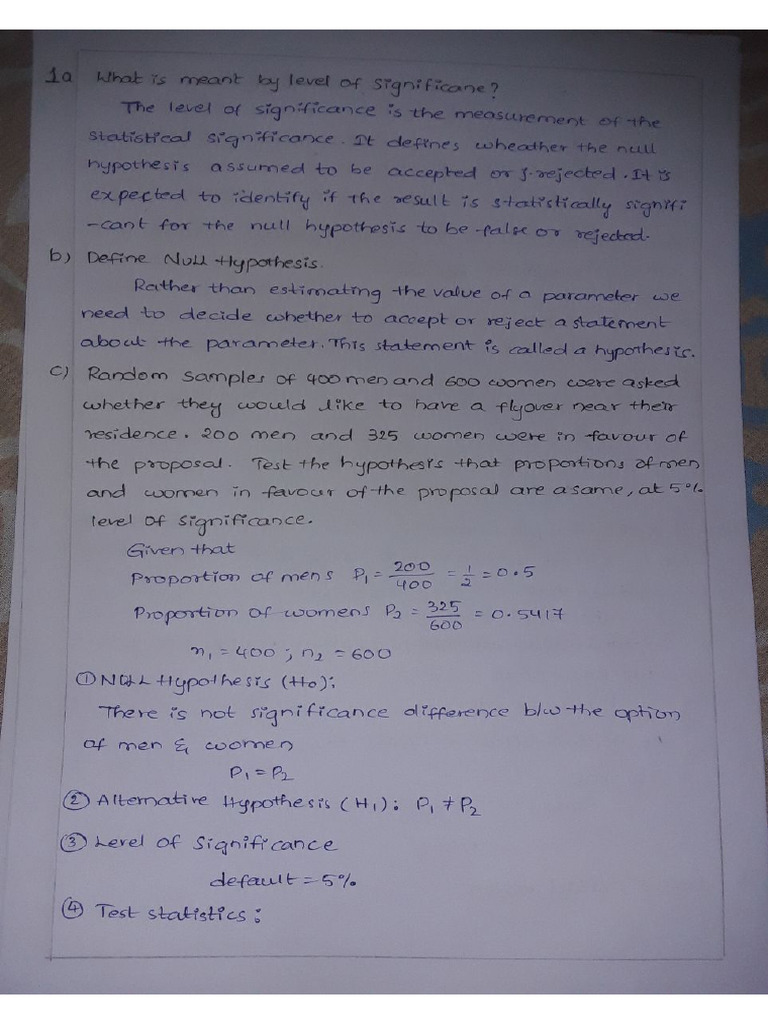 1a What is meant by level of Significane?
The level of significance is the measurement of the
statistical significance. It defines wheather the null
hypothesis assumed to be accepted or rejected. It is
expected to identify if the result is statistically signifi
-cant for the null hypothesis to be false or rejected.
b) Define Null Hypothesis.
Rather than estimating the value of a parameter we
need to decide whether to accept or reject a statement
about the parameter. This statement is called a hypothesis.
c) Random Samples of 400 men and 600 women were asked
whether they would like to have a flyover near their
residence. 200 men and 325 women were in favour of
the proposal. Test the hypothesis that proportions of men
and women in favour of the proposal are a same, at 5%
level of significance.
Given that
Proportion of mens P₁ = 200/400 = 1/2 = 0.5
Proportion of womens P₂ = 325/600 = 0.5417
n₁ = 400 ; n₂ = 600
① Null Hypothesis (H₀):
There is not significance difference b/w the option
of men & women
P₁ = P₂
② Alternative Hypothesis (H₁): P₁ ≠ P₂
③ Level of Significance
default = 5%
④ Test statistics: